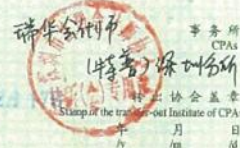 瑞华会计师 事务所
CPAs
(特普)深圳分所
转出协会盖章
Stamp of the transfer-out Institute of CPAs
年 月 日
/y /m /d